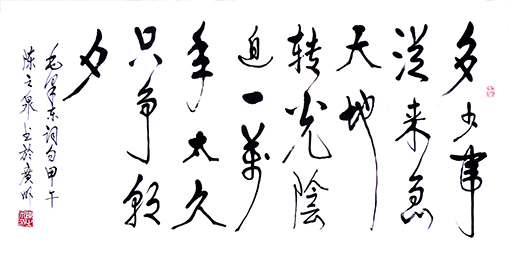 多少事
従来急
天地
转光陰
迫一萬
年太久
只争朝
夕
毛泽东词句甲午
陈之泉书於廣州